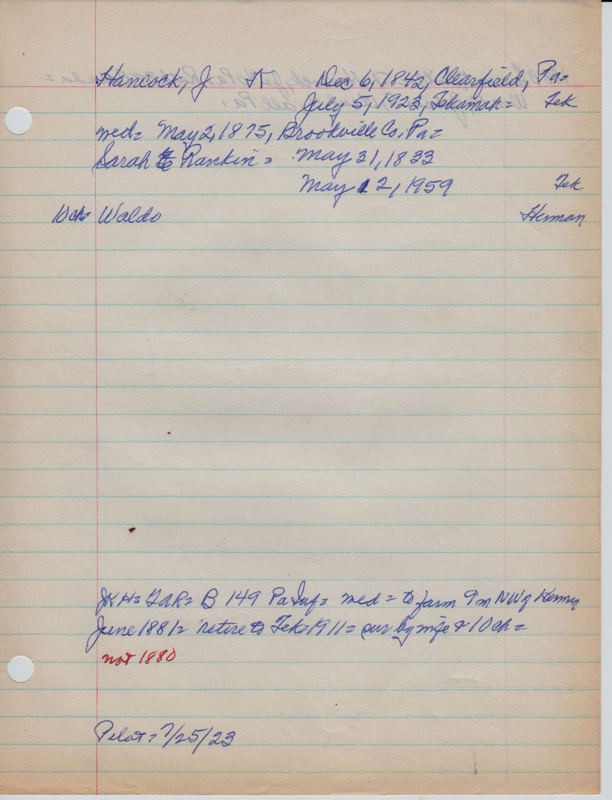 Hancock, J K Dec 6, 1842, Clearfield, Pa=
July 5, 1923, Tekamah= Tek
med= May 2, 1875, Brookville Co. Pa=
Sarah E Rankin= May 31, 1833
May 12, 1959 Tek
10 ch= Waldo Herman
JKH= GAR= B 149 Pa Inf= med= to farm 9 m NW of Herman
June 1881= retire to Tek= 1911= sur by wife & 10 ch=
not 1880
Pilot= 7/25/23